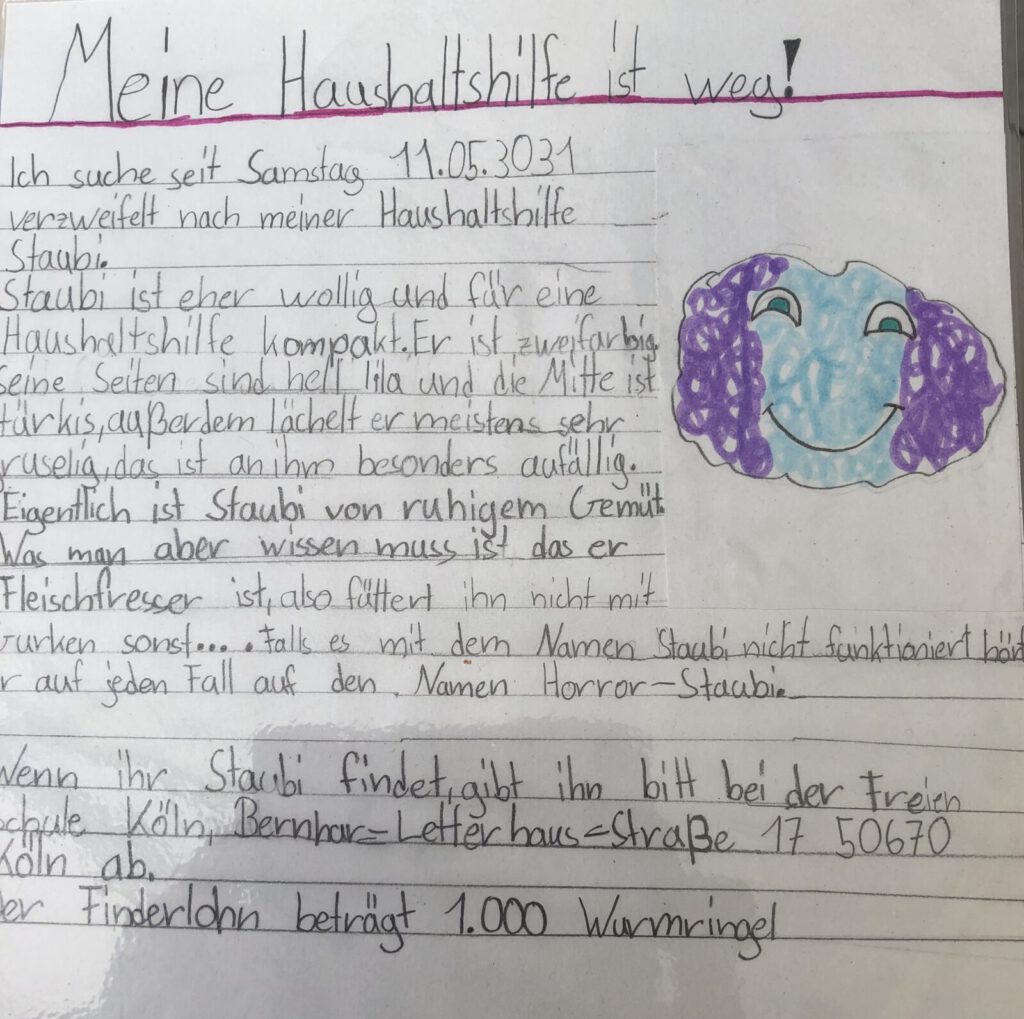 Meine Haushaltshilfe ist weg!
Ich suche seit Samstag 11.05.3031
verzweifelt nach meiner Haushaltshilfe
Staubi.
Staubi ist eher wollig und für eine
Haushaltshilfe kompakt. Er ist zweifarbig
seine Seiten sind hell lila und die Mitte ist
türkis, außerdem lächelt er meistens sehr
ruselig, das ist an ihm besonders aufällig.
Eigentlich ist Staubi von ruhigem Gemüt.
Was man aber wissen muss ist das er
Fleischfresser ist, also füttert ihn nicht mit
Gurken sonst.... Falls es mit dem Namen Staubi nicht funktioniert hört
r auf jeden Fall auf den Namen Horror-Staubi.
Wenn ihr Staubi findet, gibt ihn bitt bei der Freien
chule Köln, Bernhar=Letterhaus=Straße 17 50670
Köln ab.
er Finderlohn beträgt 1.000 Wurmringel